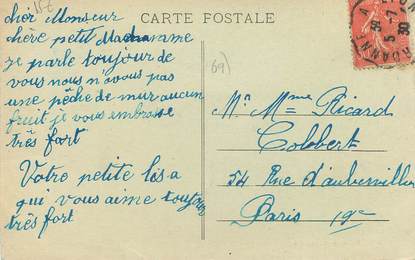 CARTE POSTALE
cher Monsieur
chère petit Madamme
je parle toujour de
vous nous n'avons pas
une pêche de mur aucun
fruit je vous embrasse
très fort
Votre petite lisa
qui vous aime toujour
très fort
Mr Mme Ricard
Colobert
54 Rue d'aubervillier
Paris 19e